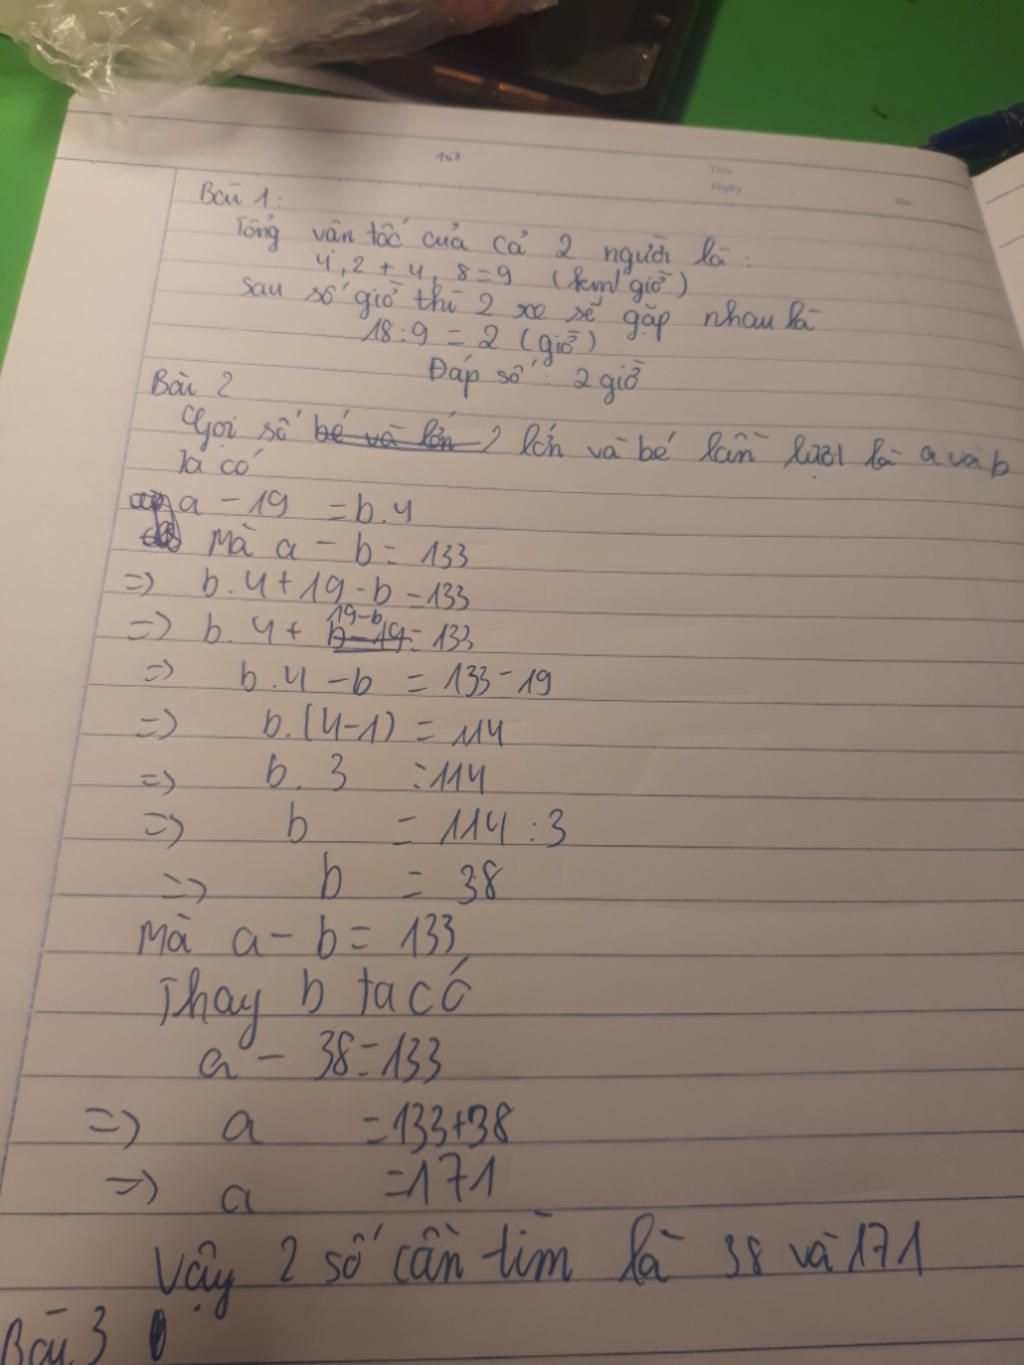 Thứ
Ngày
Bài 1:
Tổng vận tốc của cả 2 người là:
4,2 + 4,8 = 9 (km/giờ)
Sau số giờ thì 2 xe sẽ gặp nhau là
18:9 = 2 (giờ)
Đáp số: 2 giờ
Bài 2
Gọi số bé và lớn 2 lớn và bé lần lượt là a và b
Ta có
a - 19 = b.4
Mà a - b = 133
=> b.4 + 19 - b = 133
19-b
=> b.4 + b-19 = 133
=> b.4 - b = 133-19
=> b.(4-1) = 114
=> b.3 = 114
=> b = 114:3
=> b = 38
Mà a - b = 133
Thay b ta có
a - 38 = 133
=> a = 133+38
=> a = 171
Vậy 2 số cần tìm là 38 và 171
Bài 3